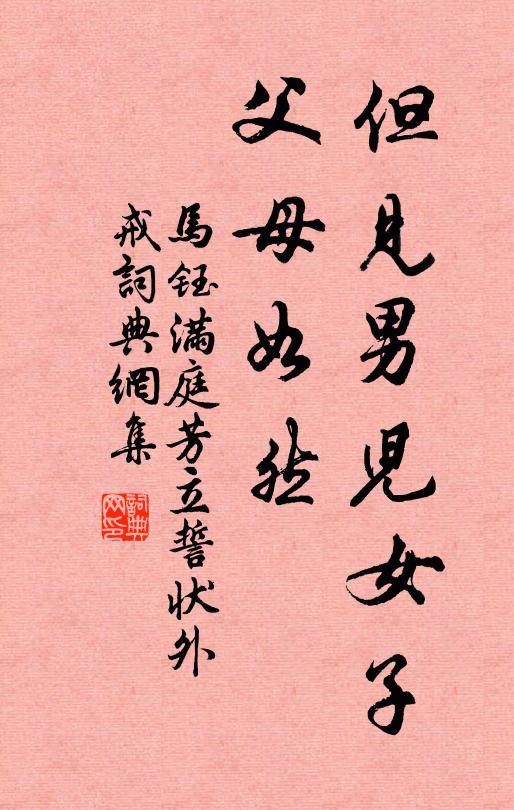 但見男兒女子
父母如然
馬鈺滿庭芳立誓狀外
戒詞典網集
詞典
网印